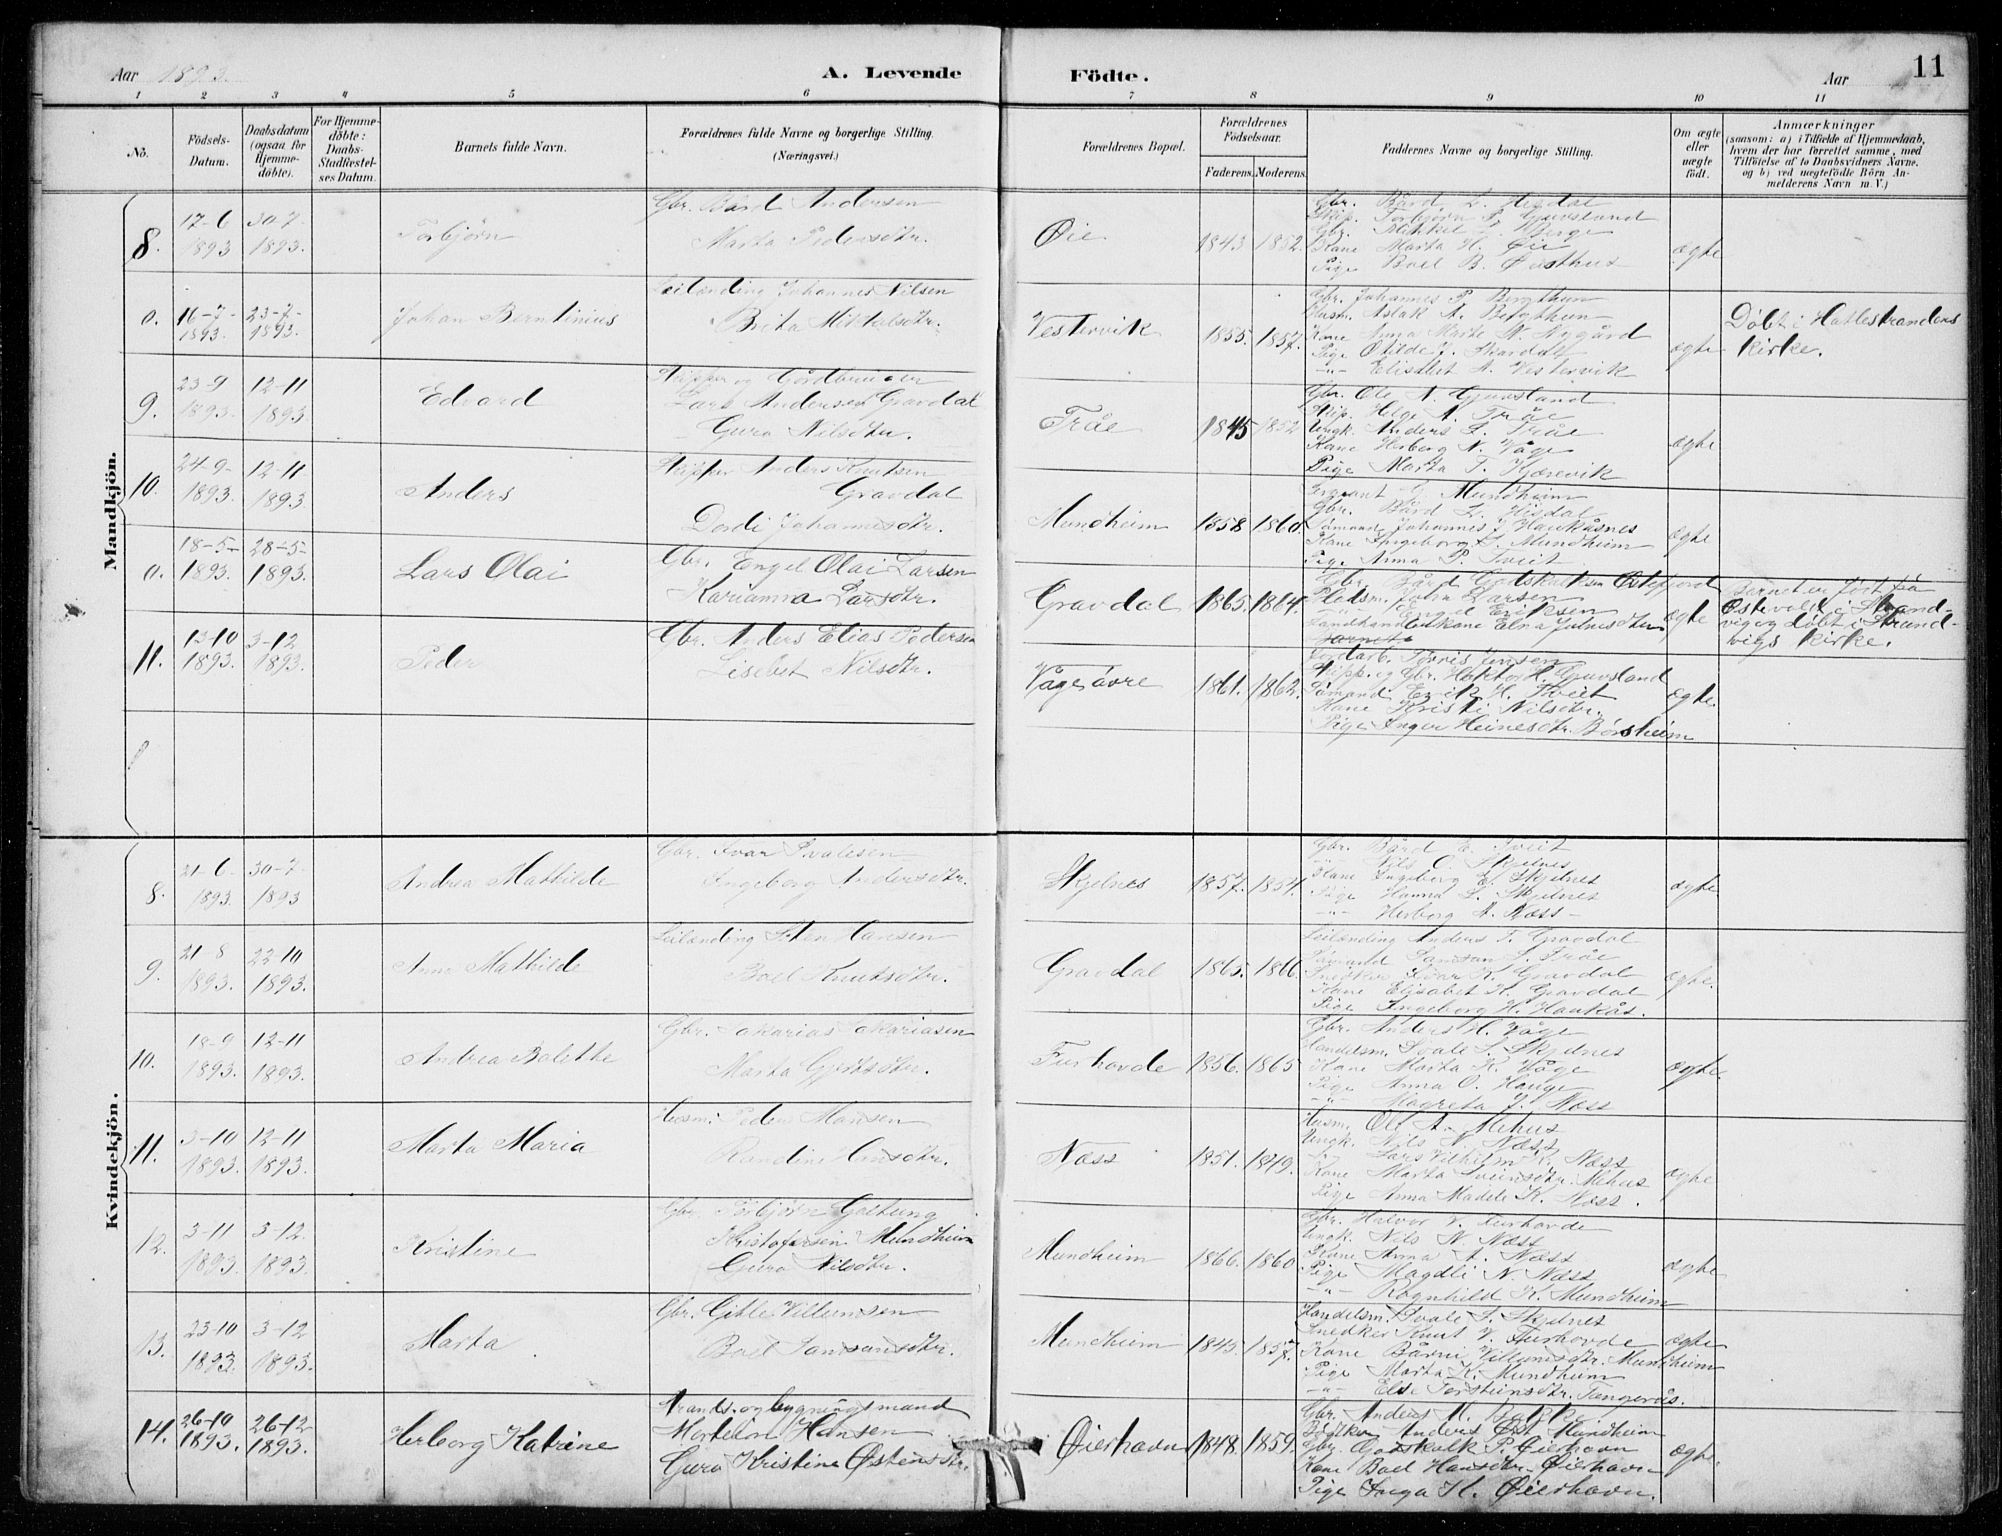 Aar 1893.
A. Levende
Födte.
Aar
11
1 2 3 4 5 6 7 8 9 10 11
No.
Födsels-
Datum.
Daabsdatum
(ogsaa for
Hjemme-
döbte).
For Hjemme-
döbte:
Daabs-
Stadfæstel-
ses Datum.
Barnets fulde Navn.
Forældrenes fulde Navne og borgerlige Stilling.
(Næringsvei.)
Forældrenes Bopæl.
Forældrenes
Födselsaar.
Faderens. Moderens.
Faddernes Navne og borgerlige Stilling.
Om ægte
eller
uægte
født.
Anmærkninger
(saasom: a) i Tilfælde af Hjemmedaab,
hvem der har forrettet samme, med
Tilföielse af to Daabsvidners Navne.
og b) ved uægtefödte Börn An-
melderens Navn m. V.)
Mandkjön.
8. 17-6 1893 30-7 1893. Torbjørn
Gbr. Bård Andersen
Marta Pedersdtr.
Øie 1843 1852.
Gbr. Bård L. Hisdal
Skip. Torbjørn P. Gjuvsland
Gbr. Mikkel L. Berge
Kone Marta H. Øie
Pige Boel B. Østhus
ægte
0. 16-7- 1893. 23-7- 1893. Johan Berntinius
Leilending Johannes Nilsen
Brita Mikkelsdtr.
Vestervik 1855. 1857.
Gbr. Johannes P. Bergthun
Husm. Aslak A. Bergthun
Kone Anna Marta N. Nygård
Pige Otilde J. Skardalt
-"- Elisabet A. Vestervik
ægte
Døbt i Hatlestrandens
kirke.
9. 23-9 1893. 12-11 1893. Edvard
Skipper og Gårdbruger
Lars Andersen Gravdal
Guro Nilsdtr.
Tråe 1845 1852
Gbr. Ole A. Gjuvsland
Skip. Helge A. Tråe
Ungk. Anders L. Tråe
Kone Herborg N. Våge
Pige Marta T. Kjærevik
ægte
10. 24-9- 1893. 12-11 1893. Anders
Skipper Anders Knutsen
Gravdal
Dordi Johannesdtr.
Mundheim 1858 1860.
Sergeant G. Mundheim
Gbr. Bård L. Hisdal
Sømand Johannes J. Haukåsnes
Kone Ingeborg L. Mundheim
Pige Anna P. Tveit
ægte
0. 18-5- 1893. 28-5- 1893. Lars Olai
Gbr. Engel Olai Larsen
Karianna Larsdtr.
Gravdal 1865. 1864.
Gbr. Bård Godskalksen Østefjord
Pledsm. John Larsen
Engel Eriksen
Landhandlerkone Elna Julnesdtr
ægte
Barnet er født på
Østevold i Strand-
vig og døbt i Strand-
vigs kirke.
11. 13-10 1893. 3-12 1893. Peder
Gbr. Anders Elias Pedersen
Lisebet Nilsdtr.
Våge øvre 1861. 1862.
Jordarb. Torris Jensen
Skipp. og Gbr. Haktor H. Gjuvsland
Sømand Erik H. Tveit
Kone Kristi Nilsdtr.
Pige Inger Heinesdtr. Børsheim
ægte.
Kvindekjön.
8. 21-6- 1893. 30-7 1893 Andrea Mathilde
Gbr. Ivar Svalesen
Ingeborg Andersdtr.
Skjelnes 1857. 1854.
Gbr. Bård E. Tveit
-"- Nils O. Skjelnes
Kone Ingeborg E. Skjelnes
Pige Hanna S. Skjelnes
-"- Herborg A. Næss-
ægte
9. 21-8 1893. 22-10 1893. Anna Mathilde
Leilending Sten Hansen
Boel Knutsdtr.
Gravdal 1865. 1866
Leilending Anders T. Gravdal
Sømand Samson S. Tråe
Snedker Ivar K. Gravdal
Kone Elisabet K. Gravdal
Pige Ingeborg H. Haukås.
ægte.
10. 18-9 1893. 12-11 1893. Andrea Bolette
Gbr. Sakarias Sakariasen
Marta Gjertsdtr.
Furhovde 1856. 1865
Gbr. Anders H. Våge
Handelsm. Svale S. Skjelnes
Kone Marta K. Våge
Pige Anna O. Hauge
-"- Magreta J. Næss
ægte.
11. 3-10 1893. 12-11 1893. Marta Maria
Husm. Peder Monsen
Randine
Næss 1851. 1849.
Husm. Ole A. Mehus
Ungk. Nils N. Næss
-"- Lars Vilhelm K. Næss
Kone Marta Sveinsdtr. Mehus
Pige Anna Madele K. Næss.
ægte
12. 3-11 1893. 3-12. 1893. Kristine
Gbr. Torbjørn Goltung
Kristofersen Mundheim
Guro Nilsdtr.
Mundheim 1866. 1860.
Gbr. Halvor V. Furhovde
Ungk. Nils N. Næss
Kone Anna A. Næss
Pige Magdli N. Næss
-"- Rognhild K. Mundheim
ægte
13. 23-10 1893. 3-12 1893. Marta
Gbr. Gitle Villumsen
Boel Samsonsdtr.
Mundheim 1843. 1857.
Handelsm. Svale S. Skjelnes
Snedker Knut V. Furhovde
Kone Bårni Villumsdtr. Mundheim
Pige Marta K. Mundheim
-"- Else Torsteinsdtr. Tangerås.
ægte
14. 26-10 1893. 26-12 1893. Herborg Katrine
Strands. og bygningsmand
Mortein Hansen
Guro Kristine Østensdtr.
Øierhavn 1848. 1859.
Gbr. Anders M. Bakke
Bødker Anders Øst. Mundheim
Gbr. Godskalk P. Øierhavn
Kone Boel Hansdtr. Øierhavn
Pige Inga H. Øierhavn.
ægte.